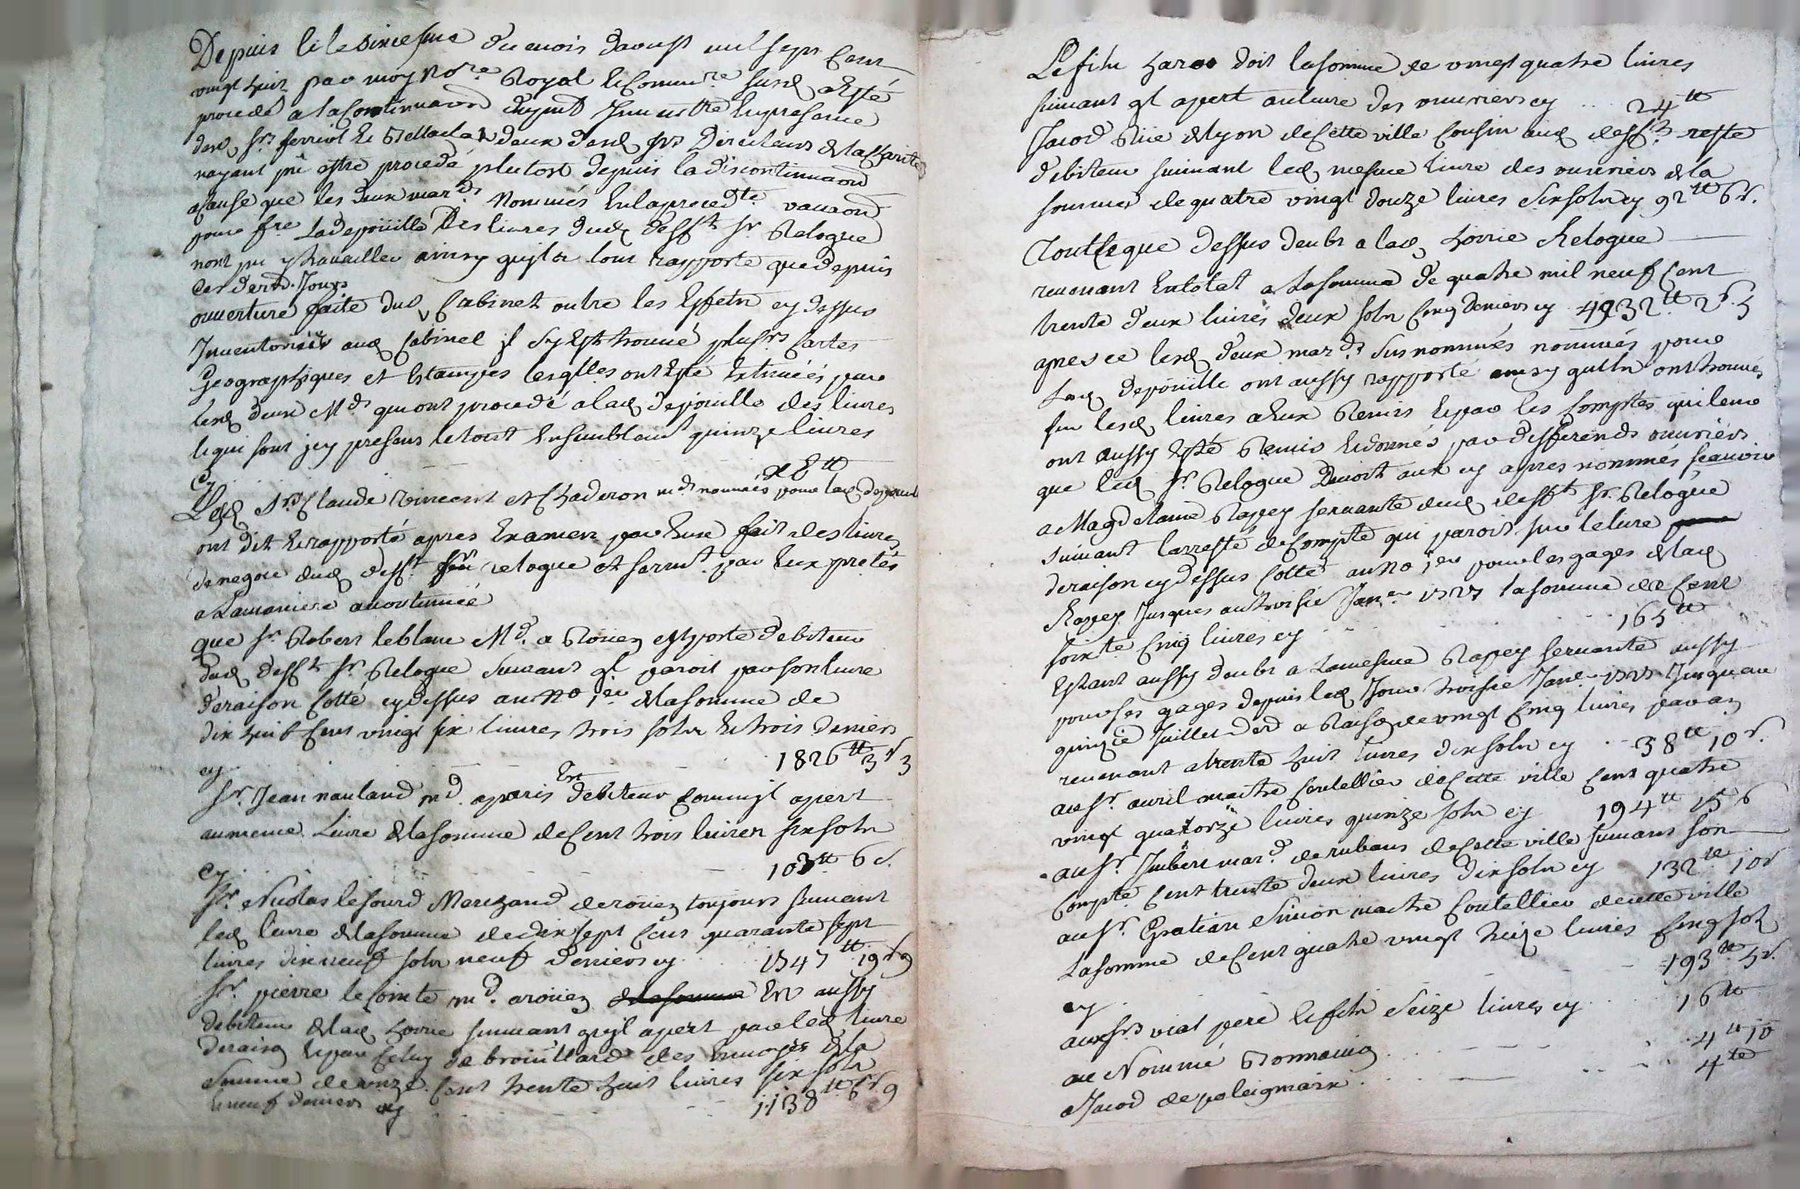 Depuis le Le sixiesme du mois d'aoust mil sept cent
vingt huit par moy no.re Royal et Comm.re susd a esté
procedé a la Continuaon dinvent En presence
desd s.rs ferriol Et deux desd srs Directeurs de la Charité
nayant pu estre procedé plutost depuis la discontinuaon
a cause que les deux mar.ds nommés En la preced.te vaccaon
pour f.re La depouille Des livres dud deff.t s.r Relogue
nont pu y travailler ainsy quils lont rapporté que depuis
ces derd. Jours
ouverture faite dud Cabinet outre les Effetn cy dessus
Inventoriés aud Cabinet il sy Est trouvé plus.rs Cartes
Geographiques et Estampes lesqlles ont Esté Estimées par
lesd deux M.ds qui ont procedé a lad depouille des livres
et qui sont jcy presens le tout Ensemblem quinze livres
cy
Lesd s.rs Claude vincent et Chaderon m.ds nommés pour lad depouil
ont dit Et rapporté apres Examen par Eux fait des livres
de negoce dud deff.t relogue et serm.t par Eux pretés
a La maniere acoutumée
que s.r Robert leblanc M.d a Rouen est porté debiteur
dud deff.t s.r Relogue suivant ql paroit par son livre
de raison Cotté cy dessus au no 1.er de la somme de
dix huit Cens vingt six livres trois soln et trois deniers
cy 1826 tt 3 s 3
s.r Jean nauland m.d a paris Est debiteur Comm'jl apert
au meme Livre de la somme de Cent trois livres six soln
cy 103 tt 6 s.
s.r Nicolas lesourd Marchand de rouen toujours suivant
led livre de la somme de dix sept Cens quarante sept
livres dix neuf soln neuf deniers cy 1747 tt 19 s 9
s.r pierre le Comte m.d a rouen Est aussy
debiteur de lad hoirie suivant quil apert par led livre
de raison Et par Celuy de broüillard des Envoyes de la
somme de onze Cent trente huit livres six soln
neuf deniers cy 1138 tt 6 s 9
Le fitn haroo doit la somme de vingt quatre livres
suivant ql apert au livre des ouvriers cy 24 tt
Jacod de lyon de Cette ville Cousin aud deff.t reste
debiteur suivant led mesme Livre des ouvriers de la
somme de quatre vingt douze livres six soln cy 92 tt 6 s.
Tout Ce que dessus deub a lad hoirie Relogue
revenant En total a La somme de quatre mil neuf Cent
trente deux livres deux soln Cinq deniers cy 4932 tt 2 s 5
apres ce lesd deux mar.ds susnommés nommés pour
Lad depouille ont aussy rapporté ainsy quiln ont trouvé
sur lesd livres a Eux Remis Et par les Comptes qui leur
ont aussy Esté Remis Et donnés par differends ouvriers
que led s.r Relogue Devoit aux cy apres nommés scavoir
a Magdelaine Rapey servante dud deff.t s.r Relogue
suivant larresté de Compte qui paroit sur le livre
de raison cy dessus Cotté au no 1.er pour les gages de lad
Rapey Jusques au troisie Jan.er 1727 la somme de Cent
soix.te Cinq livres cy 165 tt
Estant aussy deub a Lamesme Rapey servante aussy
pour ses gages depuis led Jour troisie Jan.er 1727 Jusqueau
quinzie Juillet der.d a Raison de vingt Cinq livres par an
revenant a trente huit livres dix soln cy 38 tt 10 s.
au s.r avril maitre Coutellier de Cette ville Cent quatre
vingt quatorze livres quinze soln cy 194 tt 15 s
au s.r Imbert mar.d de rubans de Cette ville suivant son
Compte Cent trente deux livres dix soln cy 132 tt 10 s
au s.r Gratian Simon maitre Coutellier de cette ville
La somme de Cent quatre vingt treize livres Cinq sols
cy 193 tt 5 s.
aux s.rs vial pere Et fitn seize livres cy 16 tt
au Nommé Bonnauig 4 tt 10
a Jacod de poleignaix 4 tt